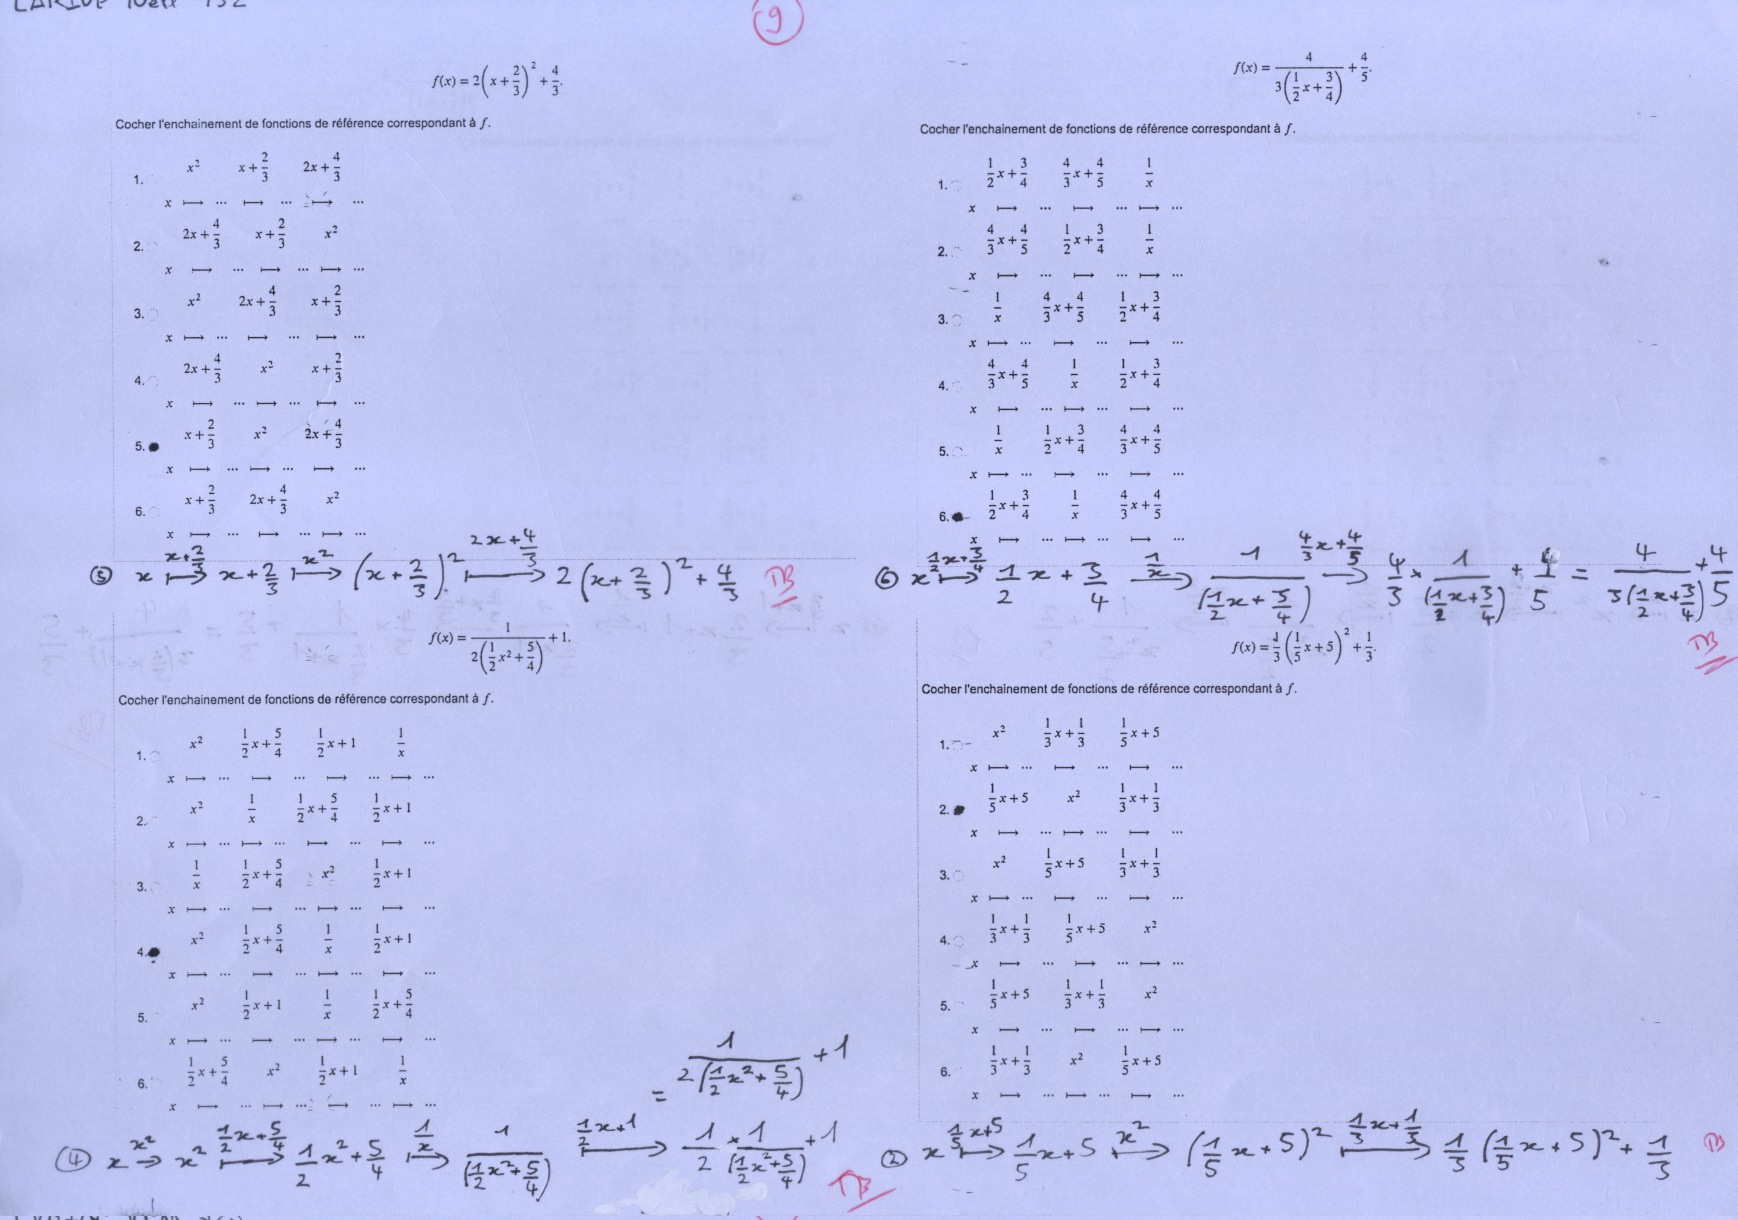 9
f(x) = 2(x + 2/3)² + 4/3.
Cocher l'enchainement de fonctions de référence correspondant à f.
1. x²   x + 2/3   2x + 4/3
x ⟼ ... ⟼ ... ⟼ ...
2. 2x + 4/3   x + 2/3   x²
x ⟼ ... ⟼ ... ⟼ ...
3. x²   2x + 4/3   x + 2/3
x ⟼ ... ⟼ ... ⟼ ...
4. 2x + 4/3   x²   x + 2/3
x ⟼ ... ⟼ ... ⟼ ...
5. x + 2/3   x²   2x + 4/3
x ⟼ ... ⟼ ... ⟼ ...
6. x + 2/3   2x + 4/3   x²
x ⟼ ... ⟼ ... ⟼ ...
x + 2/3   x²   2x + 4/3
⑤ x ⟼ x + 2/3 ⟼ (x + 2/3)² ⟼ 2(x + 2/3)² + 4/3 TB
f(x) = 4/(3(1/2 x + 3/4)) + 4/5.
Cocher l'enchainement de fonctions de référence correspondant à f.
1. 1/2 x + 3/4   4/3 x + 4/5   1/x
x ⟼ ... ⟼ ... ⟼ ...
2. 4/3 x + 4/5   1/2 x + 3/4   1/x
x ⟼ ... ⟼ ... ⟼ ...
3. 1/x   4/3 x + 4/5   1/2 x + 3/4
x ⟼ ... ⟼ ... ⟼ ...
4. 4/3 x + 4/5   1/x   1/2 x + 3/4
x ⟼ ... ⟼ ... ⟼ ...
5. 1/x   1/2 x + 3/4   4/3 x + 4/5
x ⟼ ... ⟼ ... ⟼ ...
6. 1/2 x + 3/4   1/x   4/3 x + 4/5
x ⟼ ... ⟼ ... ⟼ ...
1/2 x + 3/4   1/x   4/3 x + 4/5
⑥ x ⟼ 1/2 x + 3/4 ⟶ 1/(1/2 x + 3/4) ⟶ 4/3 × 1/(1/2 x + 3/4) + 4/5 = 4/(3(1/2 x + 3/4)) + 4/5
TB
f(x) = 1/(2(1/2 x² + 5/4)) + 1.
Cocher l'enchainement de fonctions de référence correspondant à f.
1. x²   1/2 x + 5/4   1/2 x + 1   1/x
x ⟼ ... ⟼ ... ⟼ ... ⟼ ...
2. x²   1/x   1/2 x + 5/4   1/2 x + 1
x ⟼ ... ⟼ ... ⟼ ... ⟼ ...
3. 1/x   1/2 x + 5/4   x²   1/2 x + 1
x ⟼ ... ⟼ ... ⟼ ... ⟼ ...
4. x²   1/2 x + 5/4   1/x   1/2 x + 1
x ⟼ ... ⟼ ... ⟼ ... ⟼ ...
5. x²   1/2 x + 1   1/x   1/2 x + 5/4
x ⟼ ... ⟼ ... ⟼ ... ⟼ ...
6. 1/2 x + 5/4   x²   1/2 x + 1   1/x
x ⟼ ... ⟼ ... ⟼ ... ⟼ ...
x²   1/2 x + 5/4   1/x   1/2 x + 1
④ x ⟶ x² ⟼ 1/2 x² + 5/4 ⟼ 1/(1/2 x² + 5/4) ⟼ 1/2 × 1/(1/2 x² + 5/4) + 1
= 1/(2(1/2 x² + 5/4)) + 1
TB
f(x) = 1/3 (1/5 x + 5)² + 1/3.
Cocher l'enchainement de fonctions de référence correspondant à f.
1. x²   1/3 x + 1/3   1/5 x + 5
x ⟼ ... ⟼ ... ⟼ ...
2. 1/5 x + 5   x²   1/3 x + 1/3
x ⟼ ... ⟼ ... ⟼ ...
3. x²   1/5 x + 5   1/3 x + 1/3
x ⟼ ... ⟼ ... ⟼ ...
4. 1/3 x + 1/3   1/5 x + 5   x²
x ⟼ ... ⟼ ... ⟼ ...
5. 1/5 x + 5   1/3 x + 1/3   x²
x ⟼ ... ⟼ ... ⟼ ...
6. 1/3 x + 1/3   x²   1/5 x + 5
x ⟼ ... ⟼ ... ⟼ ...
1/5 x + 5   x²   1/3 x + 1/3
② x ⟼ 1/5 x + 5 ⟼ (1/5 x + 5)² ⟼ 1/3 (1/5 x + 5)² + 1/3 TB